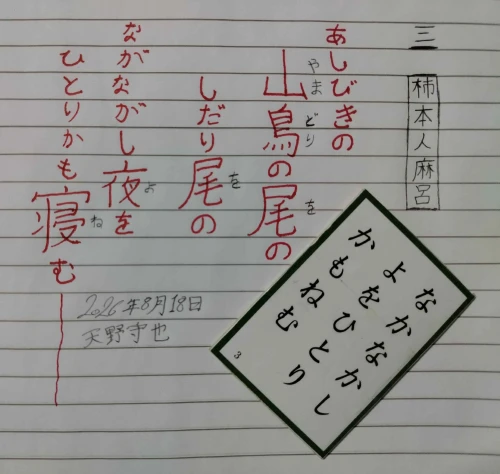 三 柿本人麻呂
あしびきの
山鳥の尾の
やま どり を
しだり尾の
を
ながながし夜を
よ
ひとりかも寝む
ね
2026年8月18日
天野守也
なかなかし
よをひとり
かもねむ
3